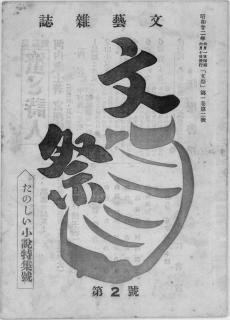 文藝雜誌
昭和廿二年
「文祭」第一卷第二號
文祭
たのしい小說特集號
第2號